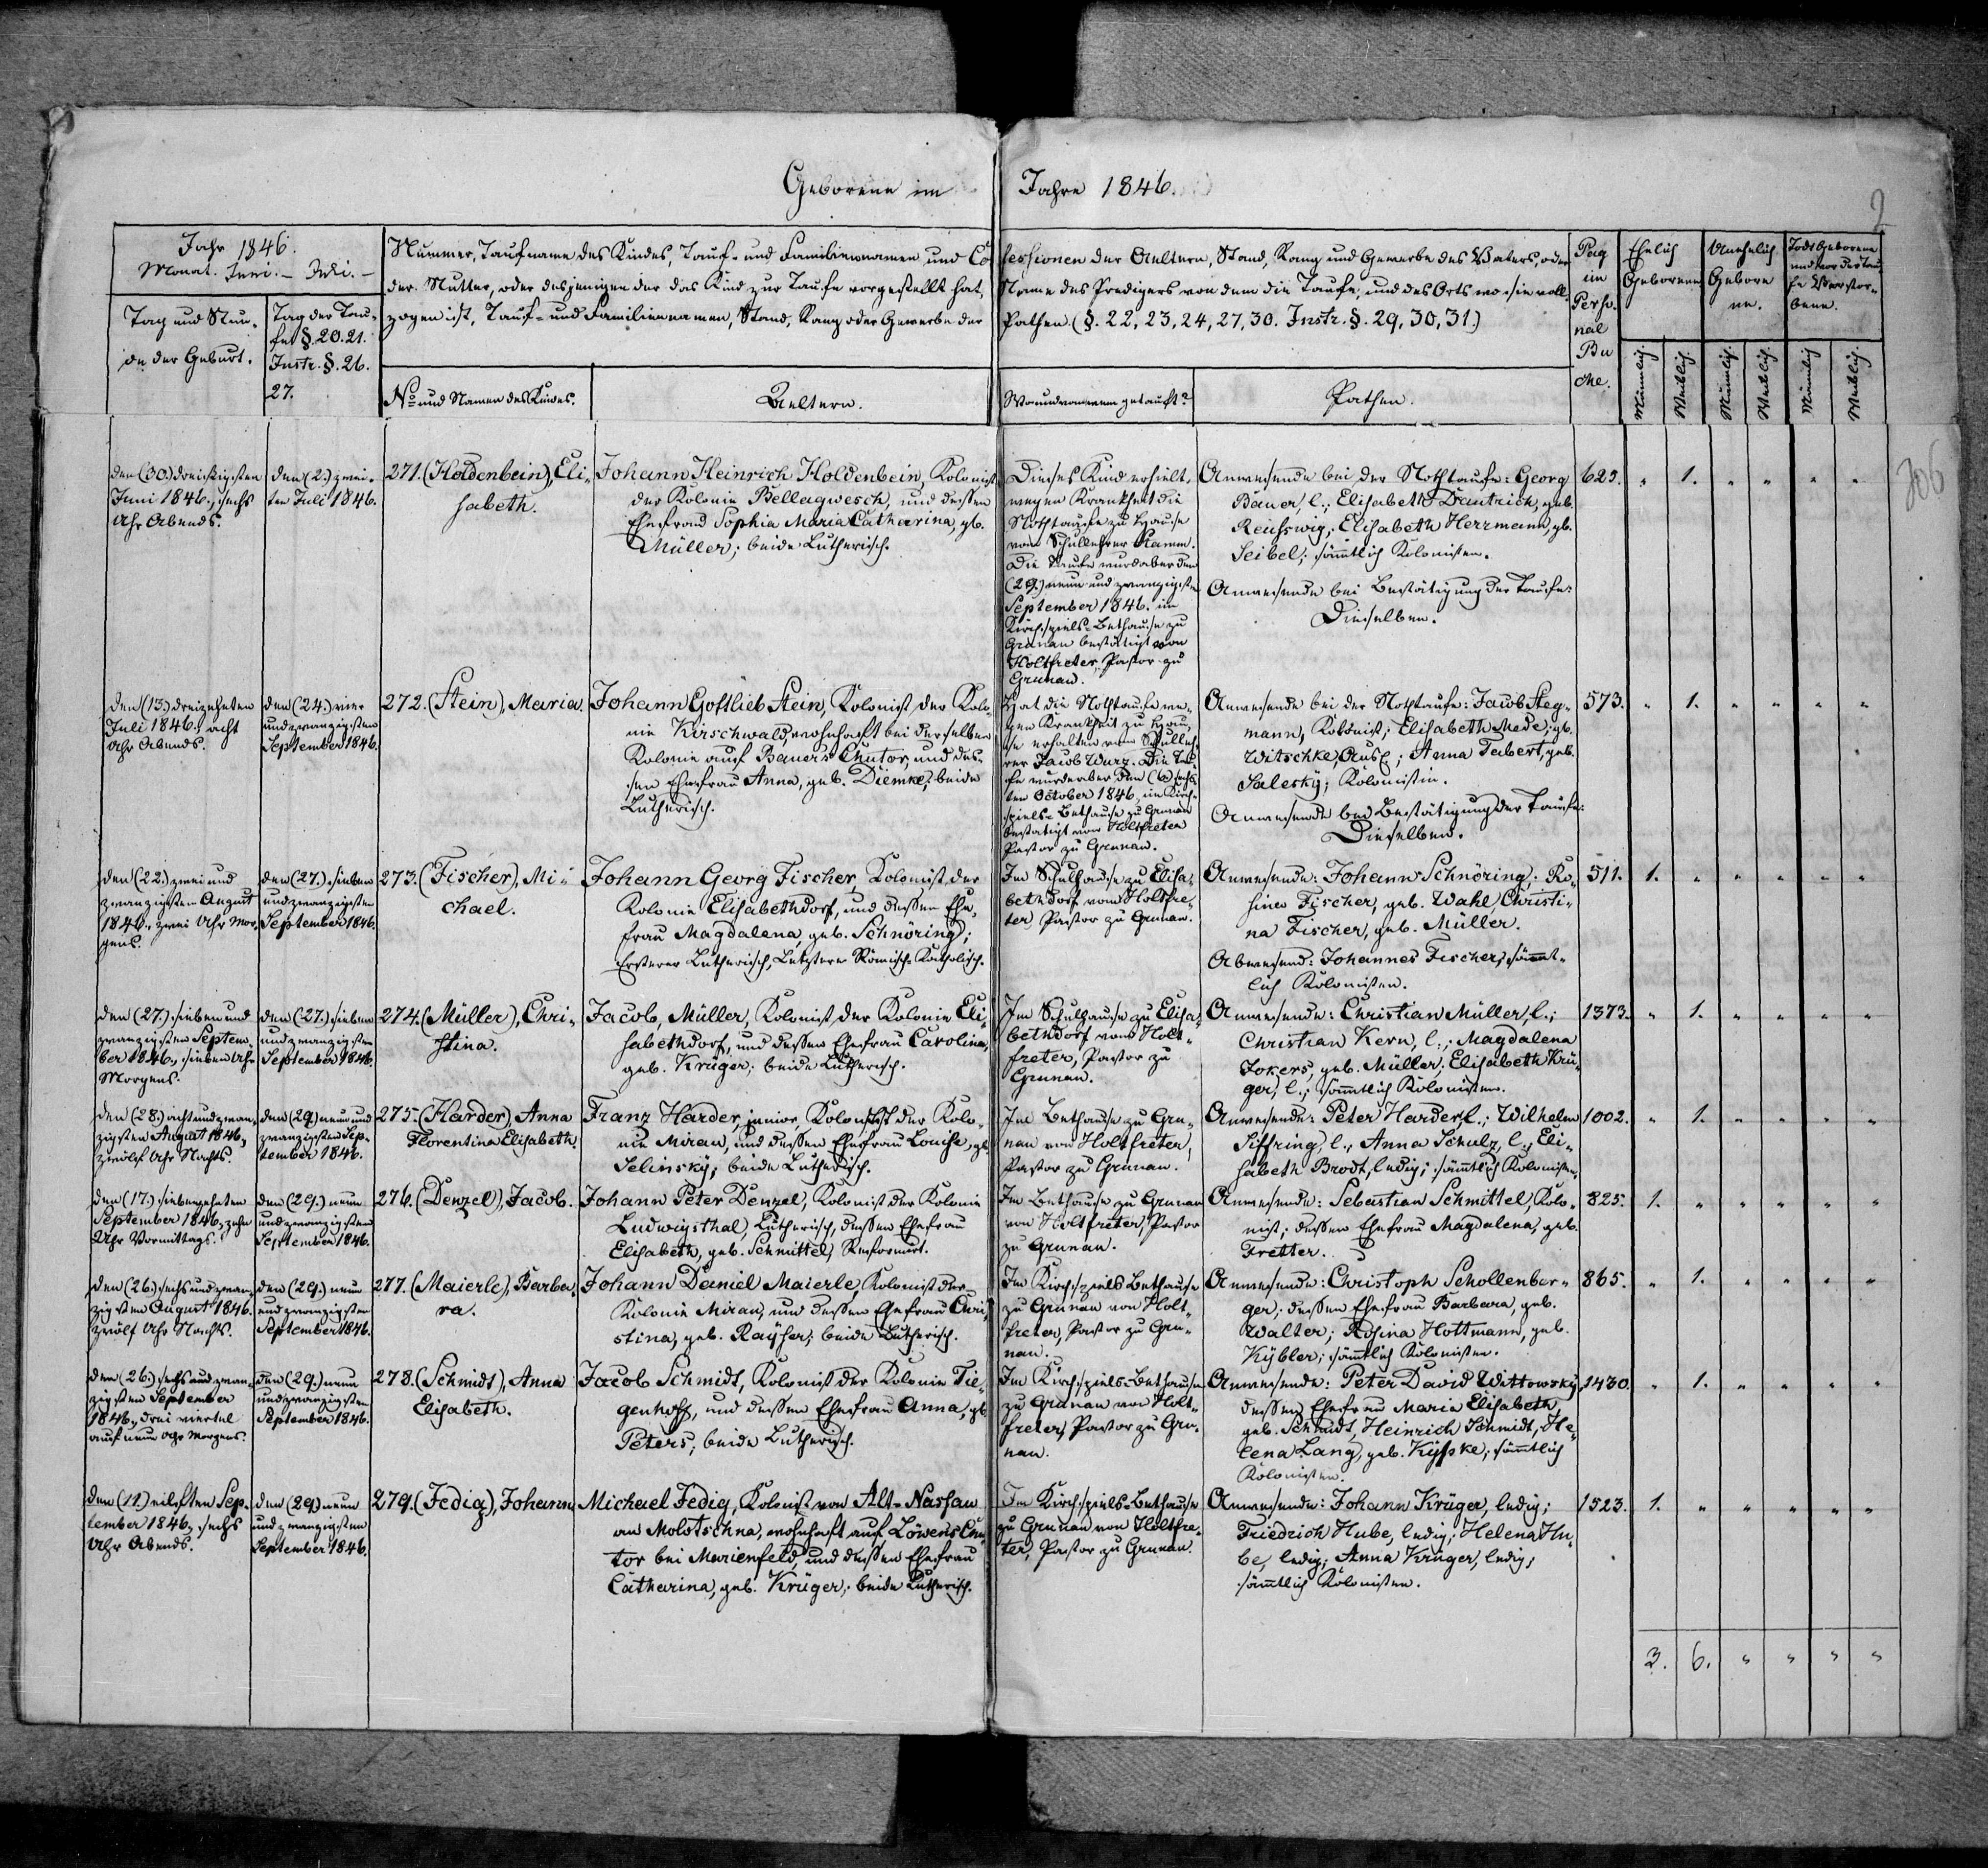 Geborene im Jahre 1846.
2
306
Jahr 1846.
Monat. Juni. – Juli. –
Tag und Stun-
de der Geburt.
Tag der Tau-
fe §. 20. 21.
Instr. §. 26.
27.
Nummer, Taufname des Kindes, Tauf- und Familiennamen und Co
der Mutter, oder desjenigen der das Kind zur Taufe vorgestellt hat,
zogen ist, Tauf- und Familiennamen, Stand, Rang oder Gewerbe der
No und Namen des Kindes.
Aeltern.
fessionen der Aeltern, Stand, Rang und Gewerbe des Vaters, oder
Name des Predigers von dem die Taufe, und des Orts wo sie voll-
Pathen. (§. 22, 23, 24, 27, 30. Instr. §. 29, 30, 31.)
Wo und von wem getauft?
Pathen.
Pag
im
Perso-
nal
Bu
che.
Ehelich
Geborene
Unehelich
Gebore
ne.
Todt Geborene
und vor der Tau-
fe Verstor-
bene.
Männlich.
Weiblich.
Männlich.
Weiblich.
Männlich
Weiblich.
den (30.) dreißigsten
Juni 1846., sechs
Uhr Abends.
den (2.) zwei-
ten Juli 1846.
271. (Holdenbein), Eli-
sabeth.
Johann Heinrich Holdenbein, Kolonist
der Kolonie Bellagwesch, und dessen
Ehefrau Sophia Maria Catharina, gb.
Müller; beide Lutherisch.
Dieses Kind erhielt,
wegen Krankheit die
Nothtaufe zu Hause
vom Schullehrer Stamm.
Die Taufe wurde aber den
(29.) neun und zwanzigsten
September 1846. im
Kirchspiels-Bethause zu
Grunau bestätigt von
Holtfreter, Pastor zu
Grunau.
Anwesende bei der Nothtaufe: Georg
Bauer, l.; Elisabeth Dautrich, geb.
Reuswig; Elisabeth Herrmann, gb.
Seibel; sämtlich Kolonisten.
Anwesende bei Bestätigung der Taufe:
Dieselben.
623. " 1. " " " "
den (13.) dreizehnten
Juli 1846., acht
Uhr Abends.
den (24.) vier
und zwanzigsten
September 1846.
272. (Stein), Maria.
Johann Gottlieb Stein, Kolonist der Kolo-
nie Kirschwald, wohnhaft bei derselben
Kolonie auf Bauers Chutor, und des-
sen Ehefrau Anna, geb. Diemke; beide
Lutherisch.
Hat die Nothtaufe we-
gen Krankheit zu Hau-
se erhalten vom Schulleh-
rer Jacob Wurz. Die Tau-
fe wurde aber den (6.) sechs-
ten October 1846, im Kirch-
spiels-Bethause zu Grunau
bestätigt von Holtfreter
Pastor zu Grunau.
Anwesende bei der Nothtaufe: Jacob Steg-
mann, Kolonist; Elisabeth Mede, gb.
Witschke, ; Anna Tabert, geb.
Salesky; Kolonistin.
Anwesende bei Bestätigung der Taufe:
Dieselben.
573. " 1. " " " "
den (22.) zwei und
zwanzigsten August
1846., zwei Uhr Mor-
gens.
den (27.) sieben
und zwanzigsten
September 1846.
273. (Fischer), Mi-
chael.
Johann Georg Fischer, Kolonist der
Kolonie Elisabethdorf, und dessen Ehe-
frau Magdalena geb. Schnöring;
Ersterer Lutherisch, Letztere Römisch-Katholisch.
Im Schulhause zu Elisa-
bethdorf vom Holtfre-
ter, Pastor zu Grunau.
Anwesende: Johann Schnöring; Ro-
sina Fischer, geb. Wahl, Christi-
na Fischer, geb. Müller.
Abwesend: Johannes Fischer; sämmt-
lich Kolonisten.
511. 1. " " " " "
den (27.) sieben und
zwanzigsten Septem-
ber 1846., sieben Uhr
Morgens.
den (27.) sieben
und zwanzigsten
September 1846.
274. (Müller), Chri-
stina.
Jacob Müller, Kolonist der Kolonie Eli-
sabethdorf, und dessen Ehefrau Carolina,
geb. Krüger; beide Lutherisch.
Im Schulhause zu Elisa-
bethdorf vom Holt-
freter, Pastor zu
Grunau.
Anwesende: Christian Müller, l.;
Christian Kern, l.; Magdalena
Jokers, geb. Müller; Elisabeth Krü-
ger, l.; sämtlich Kolonisten.
1373. " 1. " " " "
den (28.) acht und zwan-
zigsten August 1846.,
zwölf Uhr Nachts.
den (29.) neun und
zwanzigsten Sep-
tember 1846.
275. (Harder), Anna
Florentina Elisabeth.
Franz Harder, junior, Kolonist der Kolo-
nie Mirau, und dessen Ehefrau Louise, gb.
Selinsky; beide Lutherisch.
Im Bethause zu Gru-
nau von Holtfreter,
Pastor zu Grunau.
Anwesende: Peter Harder, l.; Wilhelm
Siffring, l., Anna Schulz, l., Eli-
sabeth Brodt, ledig; sämtlich Kolonisten.
1002. " 1. " " " "
den (17.) siebzehnten
September 1846., zehn
Uhr Vormittags.
den (29.) neun
und zwanzigsten
September 1846.
276. (Denzel), Jacob.
Johann Peter Denzel, Kolonist der Kolonie
Ludwigsthal, Lutherisch, dessen Ehefrau
Elisabeth, geb. Schmittel, Reformirt.
Im Bethause zu Grunau
von Holtfreter, Pastor
zu Grunau.
Anwesende: Sebastian Schmittel, Kolo-
nist; dessen Ehefrau Magdalena, geb.
Fretter.
825. 1. " " " " "
den (26.) sechs und zwan-
zigsten August 1846.
zwölf Uhr Nachts.
den (29.) neun
und zwanzigsten
September 1846.
277. (Maierle), Barba-
ra.
Johann Daniel Maierle, Kolonist der
Kolonie Mirau, und dessen Ehefrau Chri-
stina, geb. Rayser; beide Lutherisch.
Im Kirchspiels Bethause
zu Grunau von Holt-
freter, Pastor zu Gru-
nau.
Anwesende: Christoph Schollenber-
ger; dessen Ehefrau Barbara, geb.
Walter; Rosina Hottmann, geb.
Kybler; sämtlich Kolonisten.
865. " 1. " " " "
den (26.) sechs und zwan-
zigsten September
1846., drei viertel
auf neun Uhr Morgens.
den (29.) neun
und zwanzigsten
September 1846.
278. (Schmidt), Anna
Elisabeth.
Jacob Schmidt, Kolonist der Kolonie Tie-
genhoff, und dessen Ehefrau Anna, gb.
Peters; beide Lutherisch.
Im Kirchspiels-Bethause
zu Grunau von Holt-
freter, Pastor zu Gru-
nau.
Anwesende: Peter David Wittowsky,
dessen Ehefrau Maria Elisabeth,
geb. Schmidt, Heinrich Schmidt, He-
lena Lang, geb. Kyske; sämtlich
Kolonisten.
1430. " 1. " " " "
den (11.) eilften Sep-
tember 1846., sechs
Uhr Abends.
den (29.) neun
und zwanzigsten
September 1846.
279. (Fedig), Johann
Michael Fedig, Kolonist von Alt-Nassau
an Molotschna, wohnhaft auf Löwens Chu-
tor bei Marienfeld, und dessen Ehefrau
Catharina, geb. Krüger; beide Lutherisch.
Im Kirchspiels-Bethause
zu Grunau von Holtfre-
ter, Pastor zu Grunau.
Anwesende: Johann Krüger, ledig;
Friedrich Hube, ledig; Helena Hu-
be, ledig; Anna Krüger, ledig;
sämtlich Kolonisten.
1523. 1. " " " " "
3. 6. " " " "